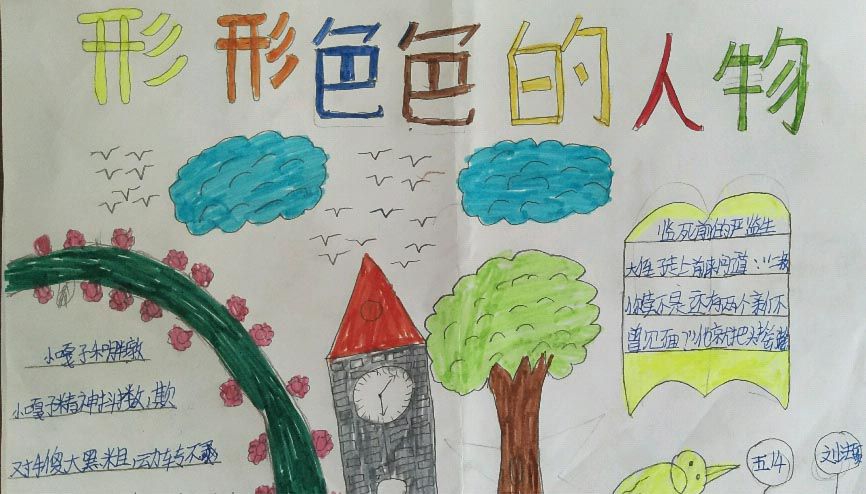 形形色色的人物
临死前的严监生
大侄子走上前来问道：“二叔
你莫不是还有两个亲人不
曾见面？”他就把头摇
小嘎子和胖墩
小嘎子精神抖擞，欺
对手傻大黑粗，动转不灵
五14